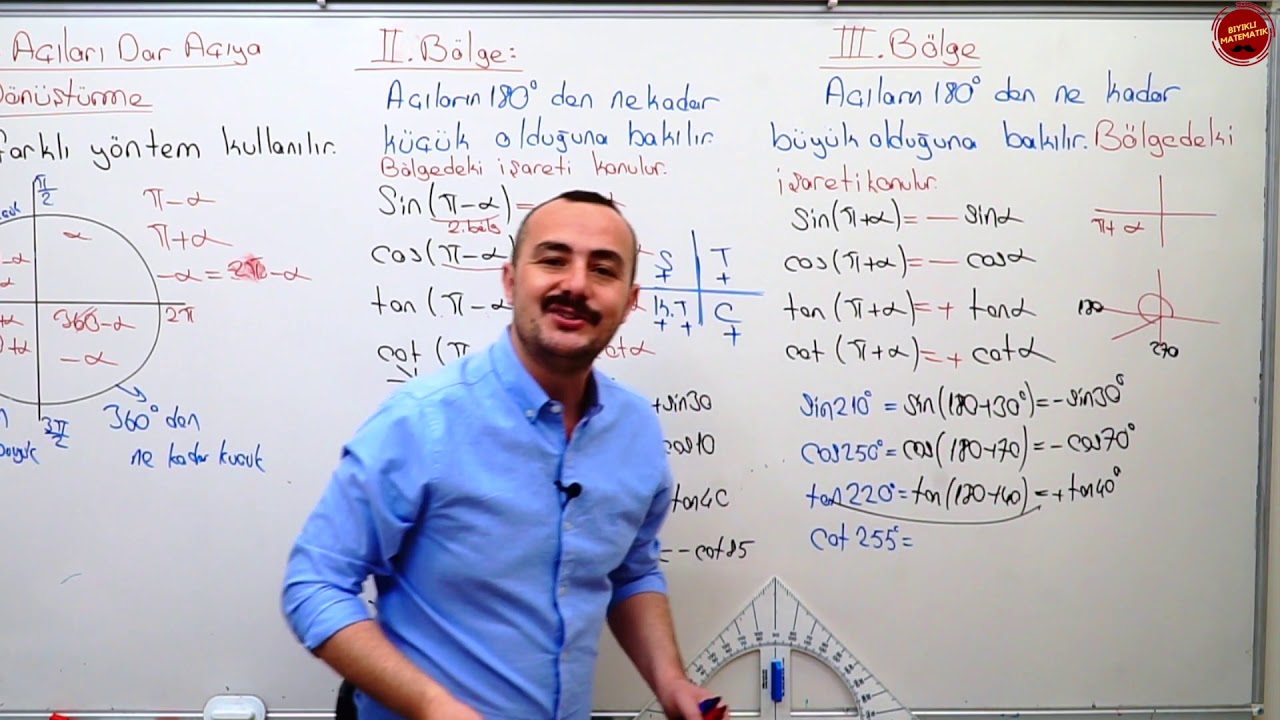 Açıları Dar Açıya
Dönüştürme
farklı yöntem kullanılır.
π/2
α
360-α
-α
2π
3π/2
π-α
π+α
-α = 2π-α
360° den
ne kadar küçük
II. Bölge:
Açıların 180° den ne kadar
küçük olduğuna bakılır.
Bölgedeki işareti konulur.
Sin(π-α)=
2. böl
cos(π-α)
tan (π-α
cot (π
S T
+ +
K.T C
+ + +
+sin30
cos10
tan40
=-cot85
III. Bölge
Açıların 180° den ne kadar
büyük olduğuna bakılır. Bölgedeki
işareti konulur.
sin(π+α)=- sinα
cos(π+α)=- cosα
tan(π+α)=+ tanα
cot(π+α)=+ cotα
sin210° = sin(180+30°)=-sin30°
cos250°=cos(180+70)=-cos70°
tan220°=tan(180+40)=+tan40°
cot 255°=
π+α
180
270
BIYIKLI
MATEMATİK